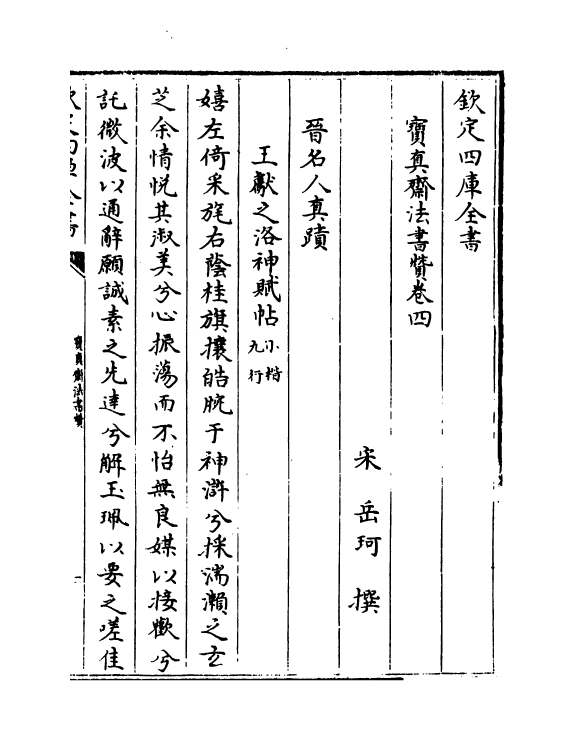 欽定四庫全書
寶真齋法書贊卷四
宋 岳珂 撰
晉名人真蹟
王獻之洛神賦帖小楷九行
嬉左倚采旄右蔭桂旗攘皓腕于神滸兮採湍瀨之玄
芝余情悦其淑美兮心振蕩而不怡無良媒以接歡兮
託微波以通辭願誠素之先達兮解玉珮以要之嗟佳
欽定四庫全書
寶真齋法書贊
一